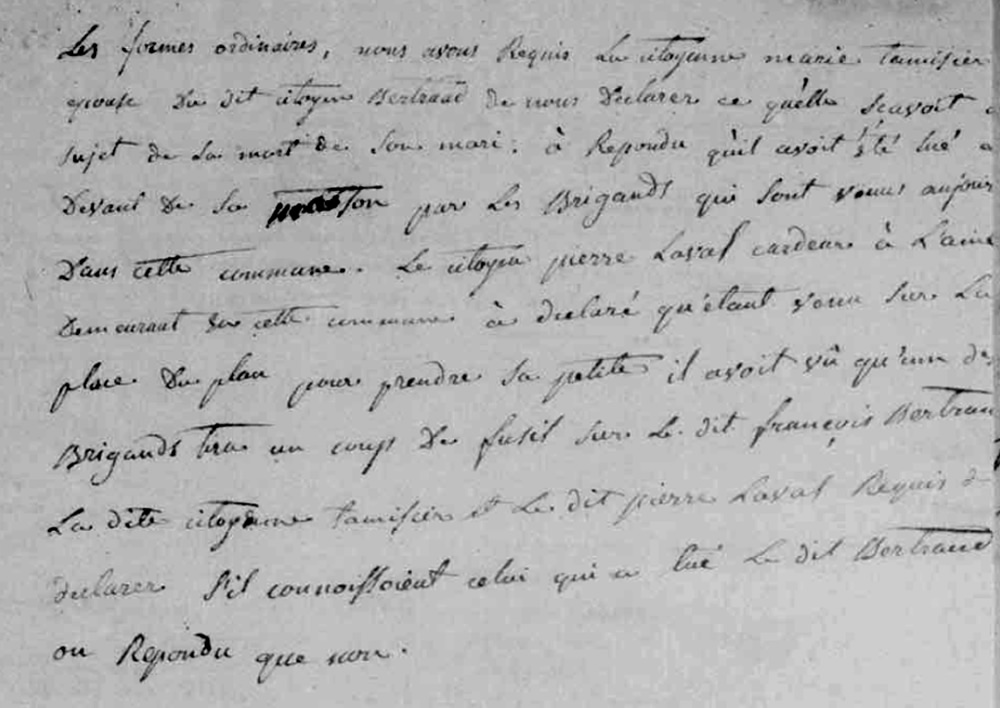 Les formes ordinaires, nous avons Requis La citoyenne marie tamisier
epouse Du dit citoyen Bertrand de nous Declarer ce qu'elle scavoit
sujet de La mort de son mari : à Repondu qu'il avoit été tué
Devant De sa maison par Les Brigands qui sont venus aujour
Dans cette commune. Le citoyen pierre Laval cardeur à Laine
Demeurant cette commune à declaré qu'etant venu sur La
place Du plan pour prendre sa petite il avoit vû qu'un des
Brigands tira un coup De fusil sur Le dit françois Bertran
La dite citoyenne tamisier et Le dit pierre Laval Requis d
declarer s'il connoissoient celui qui a tué Le dit Bertrand
on Repondu que non.